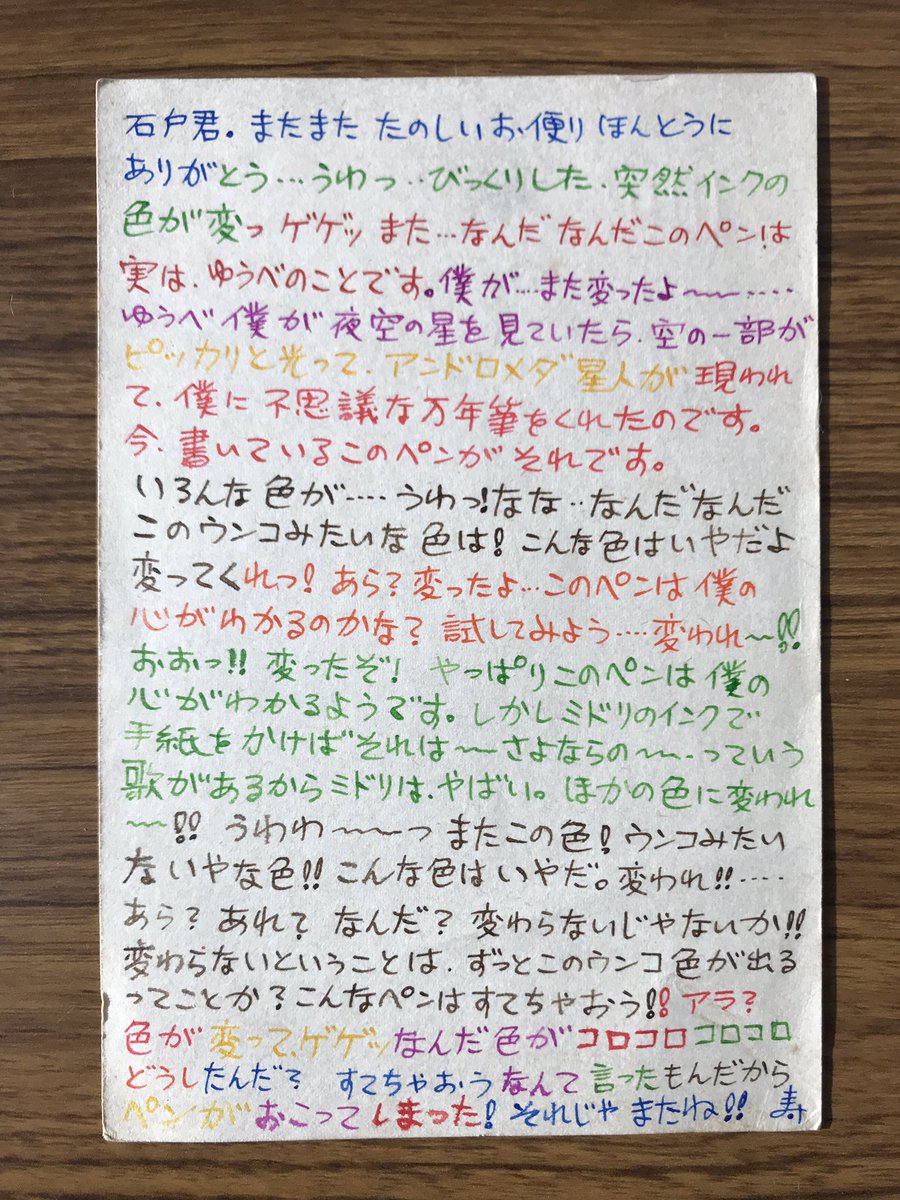 石戸君。またまた たのしいお便り ほんとうに
ありがとう…うわっ‥びっくりした．突然インクの
色が変っ ゲゲッ また…なんだ なんだこのペンは
実は、ゆうべのことです。僕が…また変ったよ〜〜‥‥
ゆうべ 僕が 夜空の星を見ていたら、空の一部が
ピッカリと光って、アンドロメダ 星人が 現われ
て、僕に 不思議な万年筆をくれたのです。
今、書いているこのペンが それです。
いろんな色が‥‥うわっ!なな‥なんだなんだ
このウンコみたいな色は! こんな色はいやだよ
変ってくれっ! あら? 変ったよ…このペンは 僕の
心がわかるのかな? 試してみよう‥‥変われ〜!!
おおっ!! 変ったぞ! やっぱりこのペンは僕の
心がわかるようです。しかしミドリのインクで
手紙をかけば それは〜〜さよならの〜〜‥っていう
歌があるからミドリは、やばい。ほかの色に変われ
〜〜!! うわわ〜〜〜っ またこの色! ウンコみたい
ないやな色!! こんな色はいやだ。変われ!!‥‥‥
あら? あれ? なんだ? 変わらないじゃないか!!
変わらないということは、ずっとこのウンコ色が出る
ってことか?こんなペンはすてちゃおう!! アラ?
色が 変って、ゲゲッなんだ色がコロコロコロコロ
どうしたんだ? すてちゃおうなんて言ったもんだから
ペンが おこってしまった! それじゃ またね!! 寿